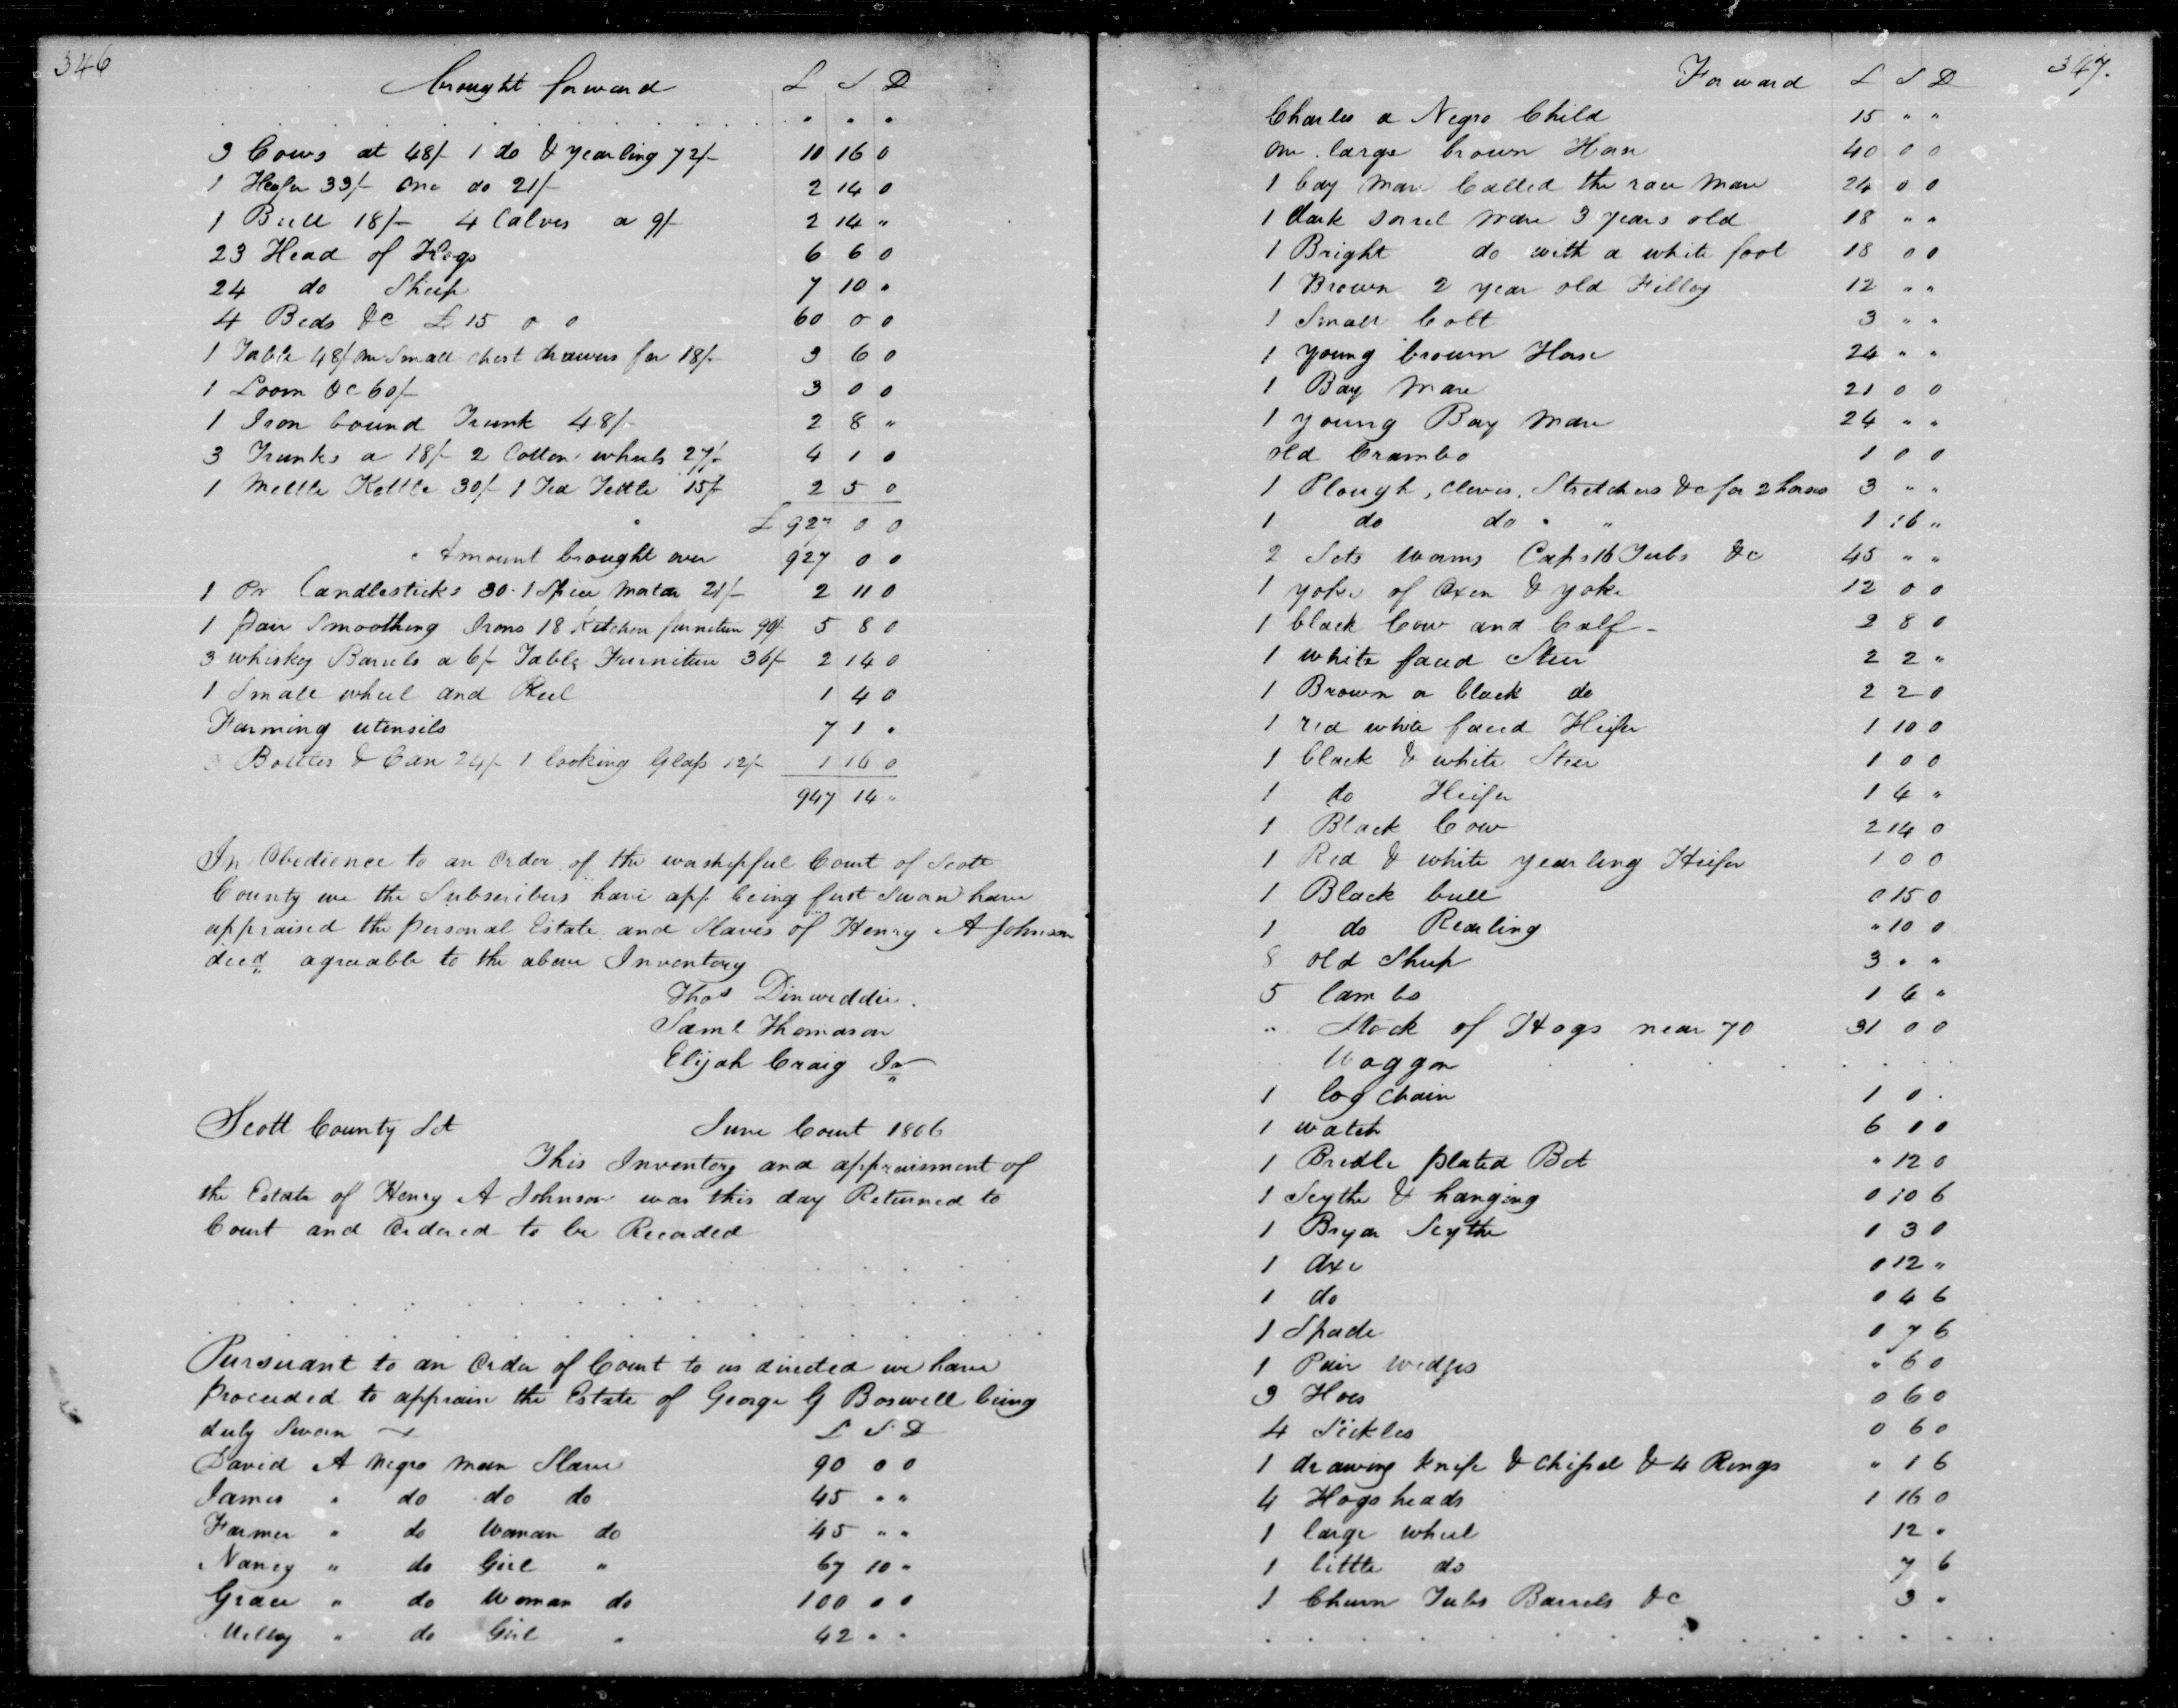 346
brought forward £ S D
3 Cows at 48/- 1 do & yearling 72/- 10 16 0
1 Heifer 33/- One do 21/- 2 14 0
1 Bull 18/- 4 Calves a 9/- 2 14 "
23 Head of Hogs 6 6 0
24 do Sheep 7 10 "
4 Beds &c £15 0 0 60 0 0
1 Table 48/ one Small chest drawers for 18/- 3 6 0
1 Loom &c 60/- 3 0 0
1 Iron bound Trunk 48/- 2 8 "
3 Trunks a 18/- 2 Cotton wheels 27/- 4 1 0
1 Mettle Kettle 30/- 1 Tea Kettle 15/- 2 5 0
£ 927 0 0
Amount brought over 927 0 0
1 Pr Candlesticks 30. 1 Spice Mortar 21/- 2 11 0
1 pair Smoothing Irons 18 Kitchen furniture 90/- 5 8 0
3 whiskey Barrels a 6/- Table Furniture 36/- 2 14 0
1 Small wheel and Reel 1 4 0
Farming utensils 7 1 "
Bottles & Can 24/- 1 looking Glass 12/- 1 16 0
947 14 "
In Obedience to an Order of the worshipful Court of Scott
County we the Subscribers have app being first Sworn have
appraised the personal Estate and Slaves of Henry A Johnson
decd agreeable to the above Inventory
Thos Dinwiddie.
Saml Thomason
Elijah Craig Jr
Scott County Sct June Court 1806
This Inventory and appraisment of
the Estate of Henry A Johnson was this day Returned to
Court and Ordered to be Recorded
Pursuant to an Order of Court to us directed we have
proceeded to appraise the Estate of George G Boswell being
duly Sworn £ S D
David A Negro man Slave 90 0 0
James " do do do 45 " "
Farmer " do Woman do 45 " "
Nancy " do Girl " 67 10 "
Grace " do Woman do 100 0 0
Milley " do Girl " 42 " "
347.
Forward £ S D
Charles a Negro Child 15 " "
One large brown Horse 40 0 0
1 bay Mare Called the race Mare 24 0 0
1 dark Sorrel Mare 3 years old 18 " "
1 Bright do with a white foot 18 0 0
1 Brown 2 year old Filley 12 " "
1 Small Colt 3 " "
1 young brown Horse 24 " "
1 Bay Mare 21 0 0
1 young Bay Mare 24 " "
old Crambo 1 0 0
1 Plough, Clevis, Stretchers &c for 2 horses 3 " "
1 do do " " 1 16 "
2 Sets worms Caps 16 Tubs &c 45 " "
1 yoke of Oxen & yoke 12 0 0
1 black Cow and Calf - 2 8 0
1 white faced Steer 2 2 "
1 Brown a black do 2 2 0
1 red white faced Heifer 1 10 0
1 black & white Steer 1 0 0
1 do Heifer 1 4 "
1 Black Cow 2 14 0
1 Red & white yearling Heifer 1 0 0
1 Black bull 0 15 0
1 do Rearling " 10 0
8 old Sheep 3 " "
5 lambs 1 6 "
" Stock of Hogs near 70 31 0 0
Waggon
1 log chain 1 0 .
1 watch 6 0 0
1 Bredle plated Bit " 12 0
1 Scythe & hanging 0 10 6
1 Bryar Scythe 0 3 0
1 Axe 0 12 "
1 do 0 4 6
1 Spade 0 7 6
1 Pair wedges " 6 0
3 Hoes 0 6 0
4 Sickles 0 6 0
1 drawing knife & chissel & 4 Rings " 1 6
4 Hogsheads 1 16 0
1 large wheel 12 "
1 little do 7 6
1 Churn Tubs Barrels &c 3 "